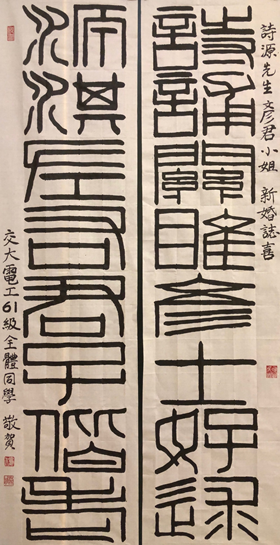 詩源先生彥君小姐 新婚誌喜
詩誦關雎彥士好逑
源淇左右君子偕老
交大電工61級全體同學 敬賀